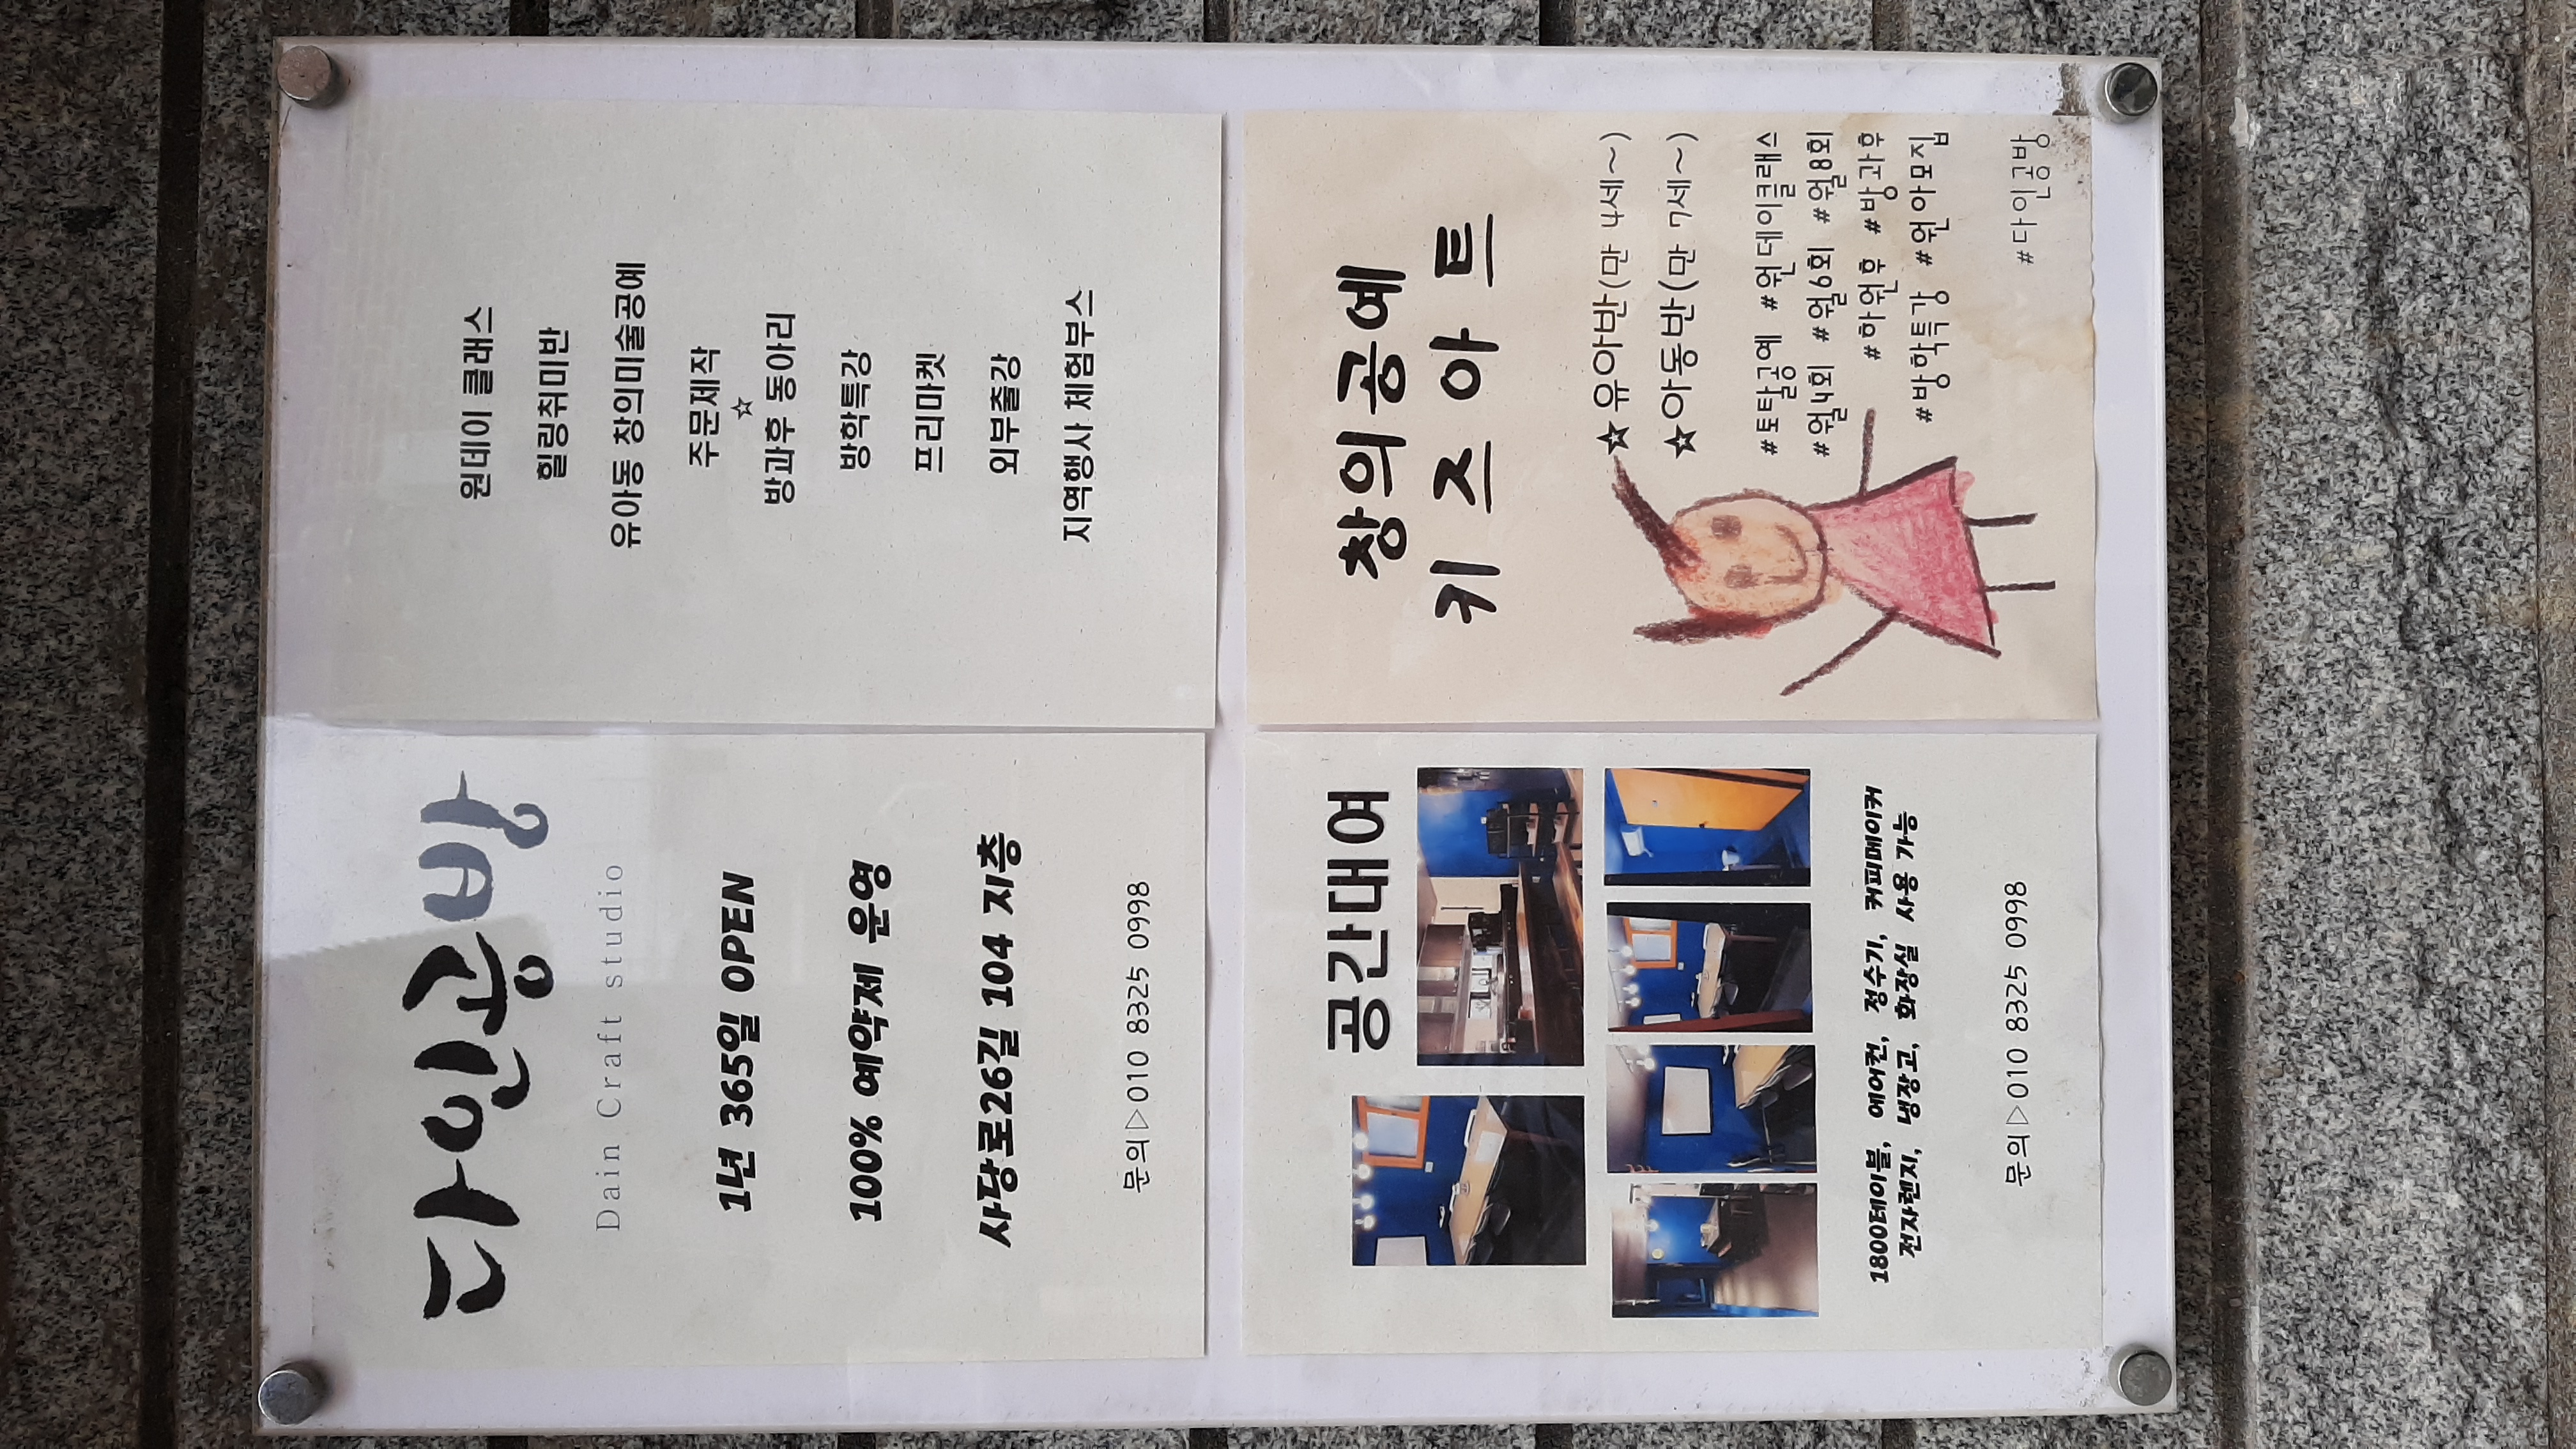 다인공방
Dain Craft studio
1년 365일 OPEN
100% 예약제 운영
사당로26길 104 지층
문의▷010 8325 0998
원데이 클래스
힐링취미반
유아동 창의미술공예
주문제작
☆
방과후 동아리
방학특강
프리마켓
외부출강
지역행사 체험부스
공간대여
1800테이블, 에어컨, 정수기, 커피메이커
전자렌지, 냉장고, 화장실 사용 가능
문의▷010 8325 0998
창의공예
키즈아트
☆유아반(만 4세~)
☆아동반(만 7세~)
#토탈공예 #원데이클래스
#월4회 #월6회 #월8회
#학원후 #방과후
#방학특강 #원아모집
#다인공방